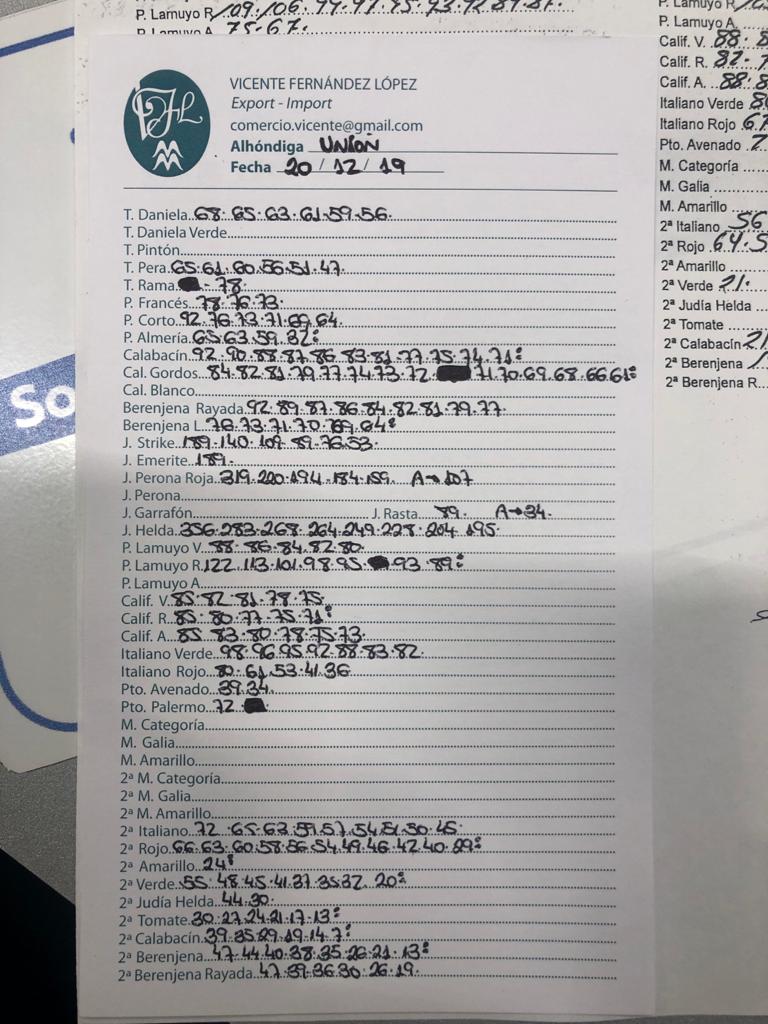 P. Lamuyo R
P. Lamuyo A 75-67.
VICENTE FERNÁNDEZ LÓPEZ
Export - Import
comercio.vicente@gmail.com
Alhóndiga UNION
Fecha 20 / 12 / 19
T. Daniela 68. 65. 63. 61. 59. 56.
T. Daniela Verde
T. Pintón
T. Pera 65. 61. 60. 56. 51. 47.
T. Rama - 78.
P. Francés 78. 76. 73.
P. Corto 92. 76. 73. 71. 69. 64.
P. Almería 65. 63. 59. 32:
Calabacín 92. 90. 88. 87. 86. 83. 81. 77. 75. 74. 71:
Cal. Gordos 84. 82. 81. 79. 77. 74. 73. 72. 71. 70. 69. 68. 66. 61:
Cal. Blanco
Berenjena Rayada 92. 89. 87. 86. 84. 82. 81. 79. 77.
Berenjena L. 76. 73. 71. 70. 64:
J. Strike 189. 140. 109. 89. 76. 53.
J. Emerite 189.
J. Perona Roja 319. 220. 194. 184. 159. A→107
J. Perona
J. Garrafón J. Rasta 89. A→34.
J. Helda 356. 283. 268. 264. 249. 228. 204. 195.
P. Lamuyo V. 88. 86. 84. 82. 80.
P. Lamuyo R. 122. 113. 101. 98. 95. 93. 89:
P. Lamuyo A
Calif. V. 85. 82. 81. 78. 75.
Calif. R. 85. 80. 77. 75. 71:
Calif. A. 85. 83. 80. 78. 75. 73.
Italiano Verde 98. 96. 95. 92. 88. 83. 82.
Italiano Rojo 80. 61. 53. 41. 36
Pto. Avenado 39. 34.
Pto. Palermo 72.
M. Categoría
M. Galia
M. Amarillo
2ª M. Categoría
2ª M. Galia
2ª M. Amarillo
2ª Italiano 72. 65. 63. 59. 57. 54. 51. 50. 45.
2ª Rojo 66. 63. 60. 58. 56. 54. 49. 46. 42. 40. 29:
2ª Amarillo 24:
2ª Verde 55. 48. 45. 41. 37. 35. 32. 20:
2ª Judía Helda 44. 30.
2ª Tomate 30. 27. 24. 21. 17. 13:
2ª Calabacín 39. 35. 29. 19. 14. 7:
2ª Berenjena 47. 44. 40. 38. 35. 26. 21. 13:
2ª Berenjena Rayada 47. 39. 36. 30. 26. 19.
So
P. Lamuyo R
P. Lamuyo A.
Calif. V. 88.
Calif. R. 82.
Calif. A. 88.
Italiano Verde
Italiano Rojo
Pto. Avenado
M. Categoría
M. Galia
M. Amarillo
2ª Italiano 56
2ª Rojo 64.
2ª Amarillo
2ª Verde 21.
2ª Judía Helda
2ª Tomate
2ª Calabacín
2ª Berenjena
2ª Berenjena R